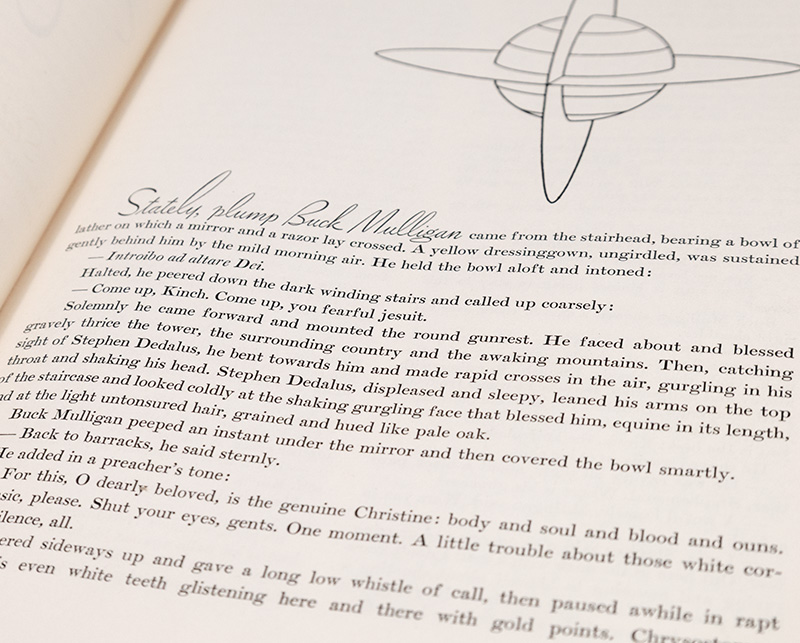 Stately, plump Buck Mulligan came from the stairhead, bearing a bowl of
lather on which a mirror and a razor lay crossed. A yellow dressinggown, ungirdled, was sustained
gently behind him by the mild morning air. He held the bowl aloft and intoned:
— Introibo ad altare Dei.
Halted, he peered down the dark winding stairs and called up coarsely:
— Come up, Kinch. Come up, you fearful jesuit.
Solemnly he came forward and mounted the round gunrest. He faced about and blessed
gravely thrice the tower, the surrounding country and the awaking mountains. Then, catching
sight of Stephen Dedalus, he bent towards him and made rapid crosses in the air, gurgling in his
throat and shaking his head. Stephen Dedalus, displeased and sleepy, leaned his arms on the top
of the staircase and looked coldly at the shaking gurgling face that blessed him, equine in its length,
nd at the light untonsured hair, grained and hued like pale oak.
Buck Mulligan peeped an instant under the mirror and then covered the bowl smartly.
— Back to barracks, he said sternly.
He added in a preacher's tone:
For this, O dearly beloved, is the genuine Christine: body and soul and blood and ouns.
sic, please. Shut your eyes, gents. One moment. A little trouble about those white cor-
ilence, all.
ered sideways up and gave a long low whistle of call, then paused awhile in rapt
s even white teeth glistening here and there with gold points.